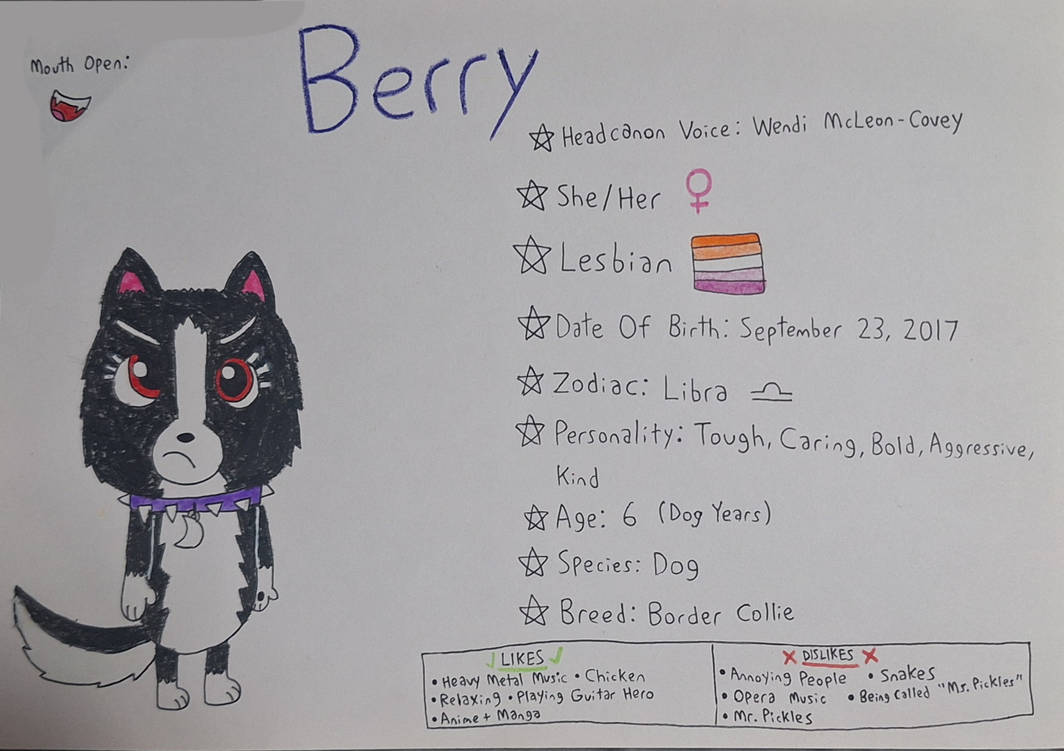 Mouth Open:
Berry
Headcanon Voice: Wendi McLeon-Covey
She/Her
Lesbian
Date Of Birth: September 23, 2017
Zodiac: Libra
Personality: Tough, Caring, Bold, Aggressive,
Kind
Age: 6 (Dog Years)
Species: Dog
Breed: Border Collie
LIKES
• Heavy Metal Music • Chicken
• Relaxing • Playing Guitar Hero
• Anime + Manga
DISLIKES
• Annoying People • Snakes
• Opera Music • Being Called "Ms. Pickles"
• Mr. Pickles